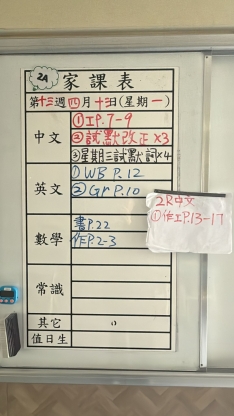 2A
家課表
第十三週四月十三日(星期一)
中文
①工P.7-9
②試默改正×3
③星期三試默詞×4
英文
①WB P.12
②Gr P.10
數學
書P.22
作P.2-3
常識
其它
值日生
2R中文
①作工P.13-17